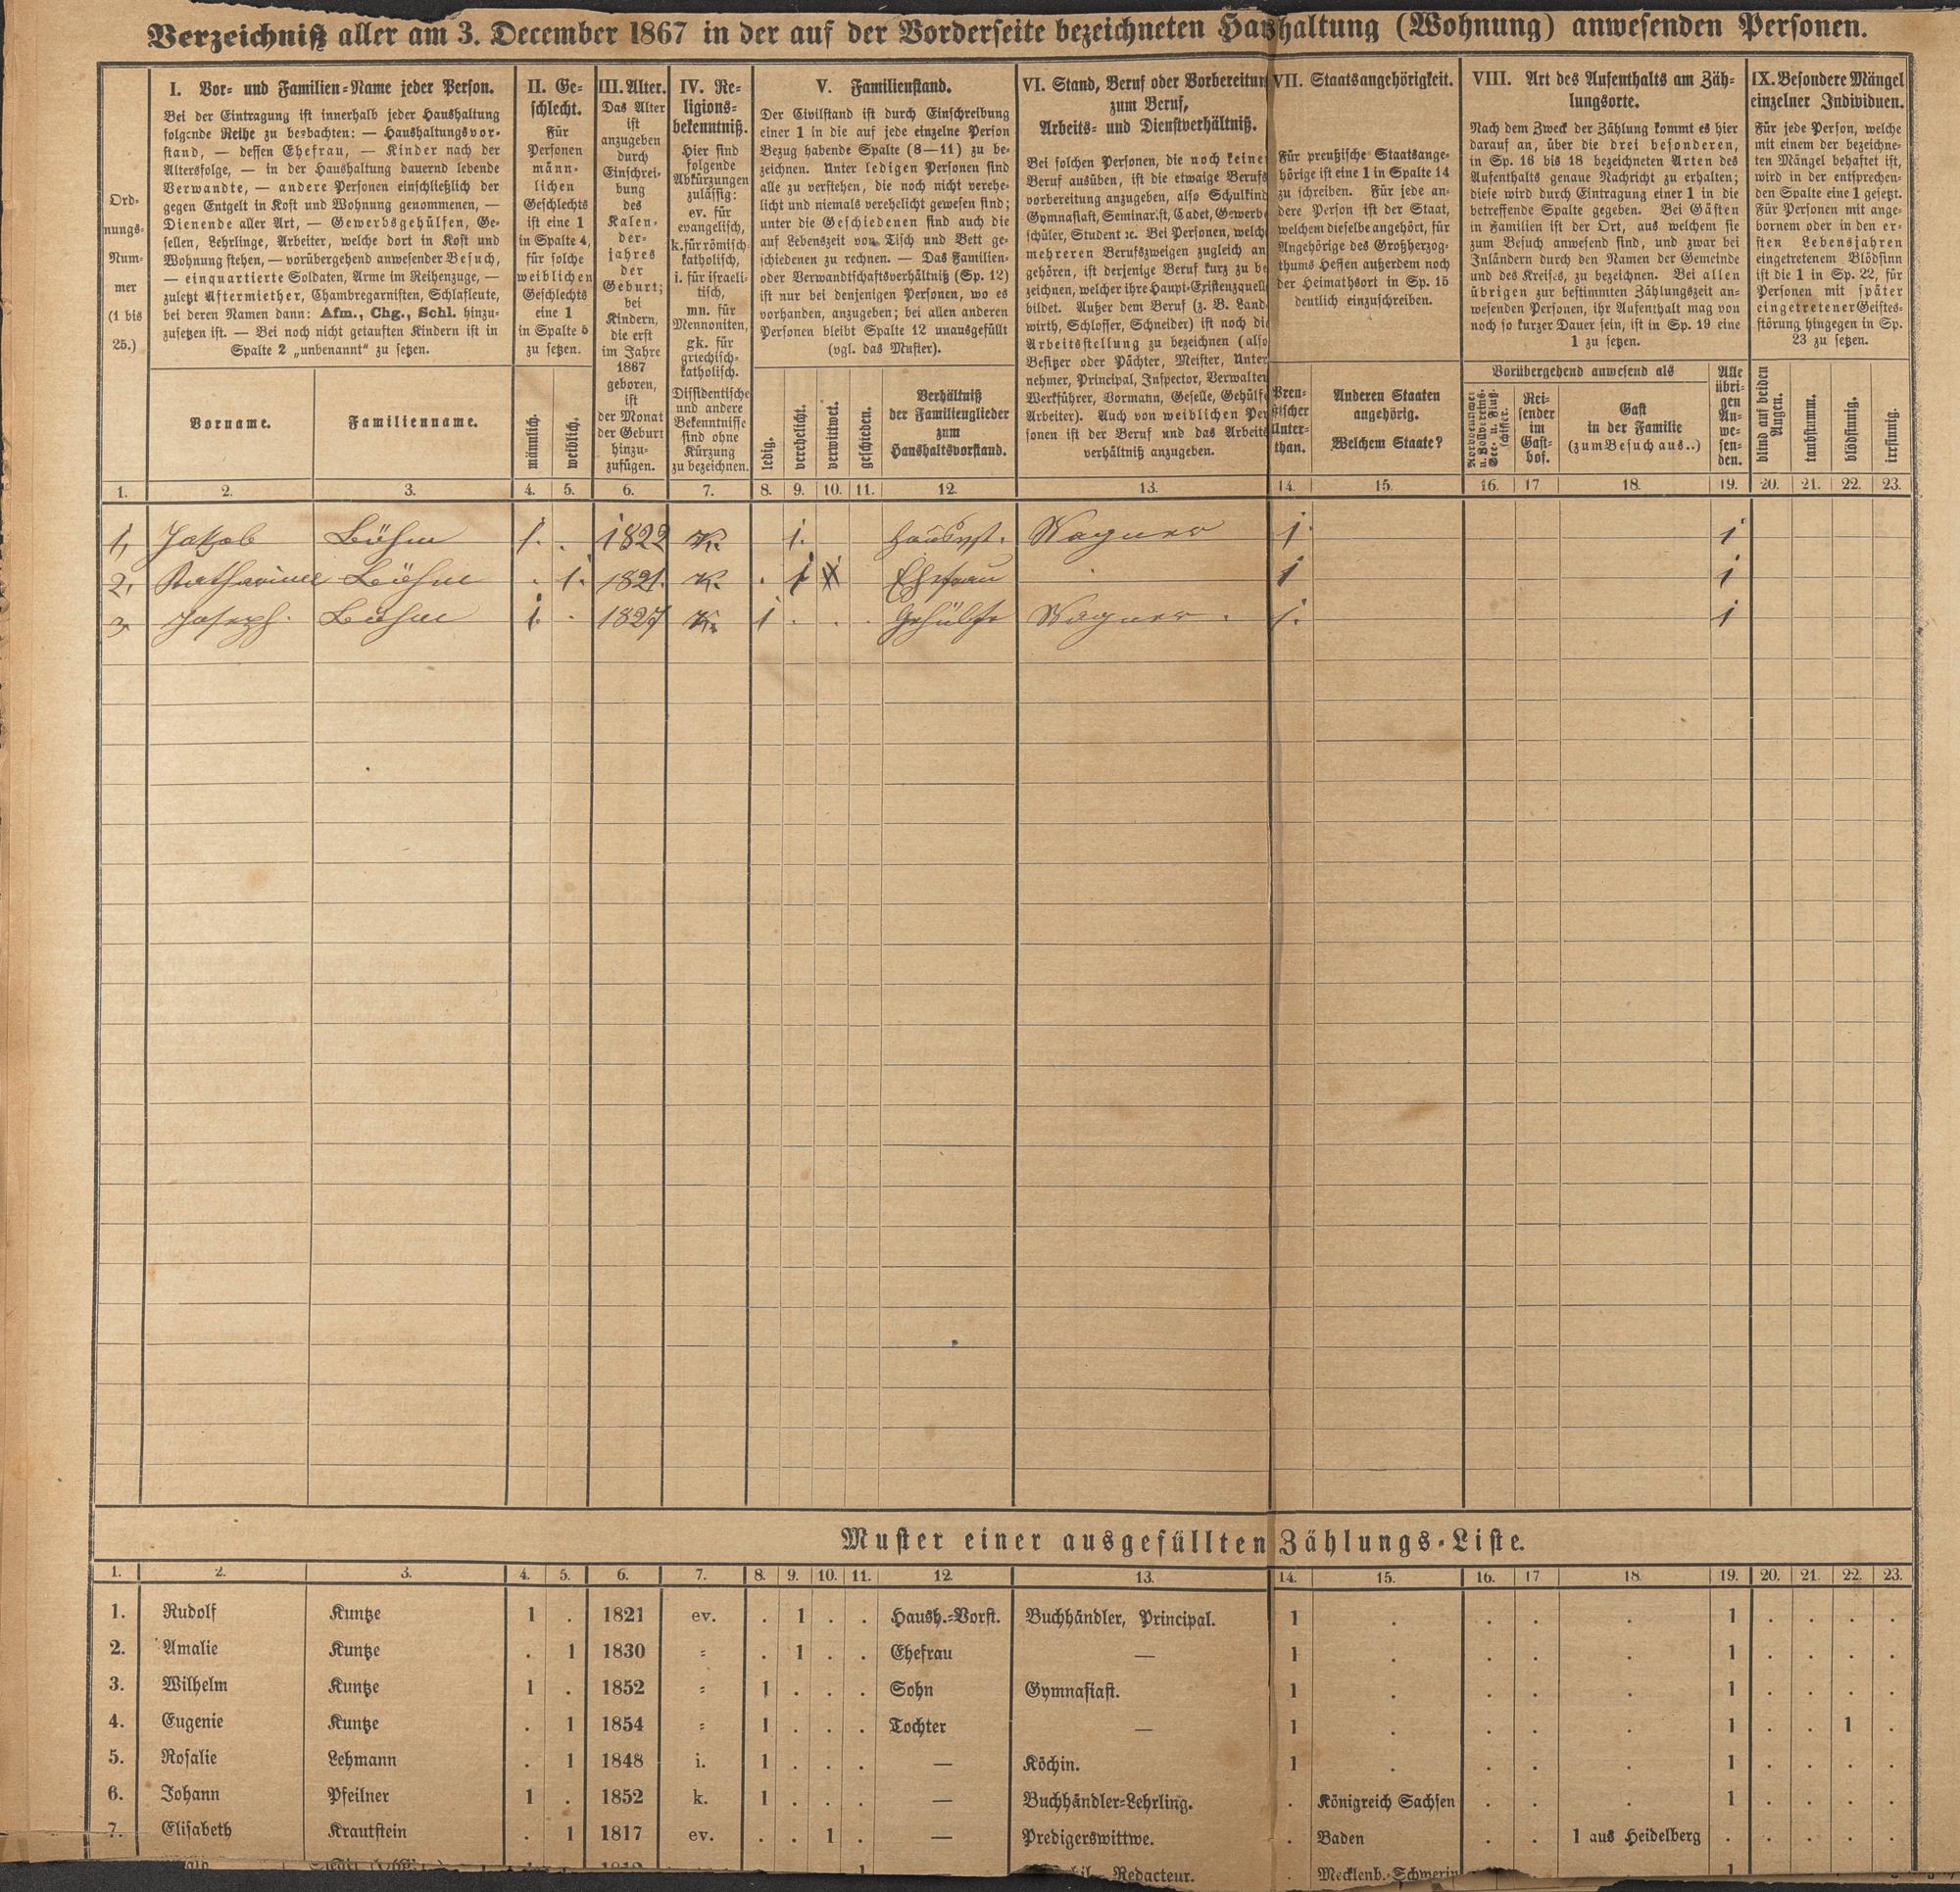 Verzeichniß aller am 3. December 1867 in der auf der Vorderseite bezeichneten Haushaltung (Wohnung) anwesenden Personen.
Ord-
nungs-
Num-
mer
(1 bis
25.)
I. Vor- und Familien-Name jeder Person.
Bei der Eintragung ist innerhalb jeder Haushaltung
folgende Reihe zu beobachten: — Haushaltungsvor-
stand, — dessen Ehefrau, — Kinder nach der
Altersfolge, — in der Haushaltung dauernd lebende
Verwandte, — andere Personen einschließlich der
gegen Entgelt in Kost und Wohnung genommenen, —
Dienende aller Art, — Gewerbsgehülfen, Ge-
sellen, Lehrlinge, Arbeiter, welche dort in Kost und
Wohnung stehen, — vorübergehend anwesender Besuch,
— einquartierte Soldaten, Arme im Reihenzuge, —
zuletzt Aftermiether, Chambregarnisten, Schlafleute,
bei deren Namen dann: Afm., Chg., Schl. hinzu-
zusetzen ist. — Bei noch nicht getauften Kindern ist in
Spalte 2 „unbenannt“ zu setzen.
Vorname.
Familienname.
II. Ge-
schlecht.
Für
Personen
männ-
lichen
Geschlechts
ist eine 1
in Spalte 4,
für solche
weiblichen
Geschlechts
eine 1
in Spalte 5
zu setzen.
männlich.
weiblich.
III. Alter.
Das Alter
ist
anzugeben
durch
Einschrei-
bung
des
Kalen-
der-
jahres
der
Geburt;
bei
Kindern,
die erst
im Jahre
1867
geboren,
ist
der Monat
der Geburt
hinzu-
zufügen.
IV. Re-
ligions-
bekenntniß.
Hier sind
folgende
Abkürzungen
zulässig:
ev. für
evangelisch,
k. für römisch-
katholisch,
i. für israeli-
tisch,
mn. für
Mennoniten,
gk. für
griechisch-
katholisch.
Dissidentische
und andere
Bekenntnisse
sind ohne
Kürzung
zu bezeichnen.
V. Familienstand.
Der Civilstand ist durch Einschreibung
einer 1 in die auf jede einzelne Person
Bezug habende Spalte (8—11) zu be-
zeichnen. Unter ledigen Personen sind
alle zu verstehen, die noch nicht verehe-
licht und niemals verehelicht gewesen sind;
unter die Geschiedenen sind auch die
auf Lebenszeit von Tisch und Bett ge-
schiedenen zu rechnen. — Das Familien-
oder Verwandtschaftsverhältniß (Sp. 12)
ist nur bei denjenigen Personen, wo es
vorhanden, anzugeben; bei allen anderen
Personen bleibt Spalte 12 unausgefüllt
(vgl. das Muster).
ledig.
verehelicht.
verwittwet.
geschieden.
Verhältniß
der Familienglieder
zum
Haushaltsvorstand.
VI. Stand, Beruf oder Vorbereitun
zum Beruf,
Arbeits- und Dienstverhältniß.
Bei solchen Personen, die noch keine
Beruf ausüben, ist die etwaige Berufs
vorbereitung anzugeben, also Schulkind
Gymnasiast, Seminarist, Cadet, Gewerb
schüler, Student ꝛc. Bei Personen, welch
mehreren Berufszweigen zugleich an
gehören, ist derjenige Beruf kurz zu be
zeichnen, welcher ihre Haupt-Existenzquell
bildet. Außer dem Beruf (z. B. Land-
wirth, Schlosser, Schneider) ist noch die
Arbeitsstellung zu bezeichnen (also
Besitzer oder Pächter, Meister, Unter
nehmer, Principal, Inspector, Verwalter
Werkführer, Vormann, Geselle, Gehülfe
Arbeiter). Auch von weiblichen Per
sonen ist der Beruf und das Arbeits
verhältniß anzugeben.
VII. Staatsangehörigkeit.
Für preußische Staatsange-
hörige ist eine 1 in Spalte 14
zu schreiben. Für jede an-
dere Person ist der Staat,
welchem dieselbe angehört, für
Angehörige des Großherzog-
thums Hessen außerdem noch
der Heimathsort in Sp. 15
deutlich einzuschreiben.
Preu-
ßischer
Unter-
than.
Anderen Staaten
angehörig.
Welchem Staate?
VIII. Art des Aufenthalts am Zäh-
lungsorte.
Nach dem Zweck der Zählung kommt es hier
darauf an, über die drei besonderen,
in Sp. 16 bis 18 bezeichneten Arten des
Aufenthalts genaue Nachricht zu erhalten;
diese wird durch Eintragung einer 1 in die
betreffende Spalte gegeben. Bei Gästen
in Familien ist der Ort, aus welchem sie
zum Besuch anwesend sind, und zwar bei
Inländern durch den Namen der Gemeinde
und des Kreises, zu bezeichnen. Bei allen
übrigen zur bestimmten Zählungszeit an-
wesenden Personen, ihr Aufenthalt mag von
noch so kurzer Dauer sein, ist in Sp. 19 eine
1 zu setzen.
Vorübergehend anwesend als
Norddeutscher
u. Zollvereins-
See- u. Fluß-
schiffer.
Rei-
sender
im
Gast-
hof.
Gast
in der Familie
(zum Besuch aus..)
Alle
übri-
gen
An-
we-
sen-
den.
IX. Besondere Mängel
einzelner Individuen.
Für jede Person, welche
mit einem der bezeichne-
ten Mängel behaftet ist,
wird in der entsprechen-
den Spalte eine 1 gesetzt.
Für Personen mit ange-
bornem oder in den er-
sten Lebensjahren
eingetretenem Blödsinn
ist die 1 in Sp. 22, für
Personen mit später
eingetretener Geistes-
störung hingegen in Sp.
23 zu setzen.
blind auf beiden
Augen.
taubstumm.
blödsinnig.
irrsinnig.
1. 2. 3. 4. 5. 6. 7. 8. 9. 10. 11. 12. 13. 14. 15. 16. 17. 18. 19. 20. 21. 22. 23.
1, Jakob Böhm 1. . 1822 K. 1. Hausvst. Wagner 1. 1
2, Katharine Böhm . 1. 1821. K. . 1 Ehefrau . 1 1
3. Joseph. Böhm 1. . 1827 K. 1 . . . Gehülfe Wagner . 1. 1
Muster einer ausgefüllten Zählungs-Liste.
1. 2. 3. 4. 5. 6. 7. 8. 9. 10. 11. 12. 13. 14. 15. 16. 17 18. 19. 20. 21. 22. 23.
1. Rudolf Kuntze 1 . 1821 ev. . 1 . . Haush.-Vorst. Buchhändler, Principal. 1 . . . . 1 . . . .
2. Amalie Kuntze . 1 1830 = . 1 . . Ehefrau — 1 . . . . 1 . . . .
3. Wilhelm Kuntze 1 . 1852 = 1 . . . Sohn Gymnasiast. 1 . . . . 1 . . . .
4. Eugenie Kuntze . 1 1854 = 1 . . . Tochter — 1 . . . . 1 . . 1 .
5. Rosalie Lehmann . 1 1848 i. 1 . . . — Köchin. 1 . . . . 1 . . . .
6. Johann Pfeilner 1 . 1852 k. 1 . . . — Buchhändler-Lehrling. . Königreich Sachsen . . . 1 . . . .
7. Elisabeth Krautstein . 1 1817 ev. . . 1 . — Predigerswittwe. . Baden . . 1 aus Heidelberg . . . . .
Redacteur. . Mecklenb.-Schwerin 1